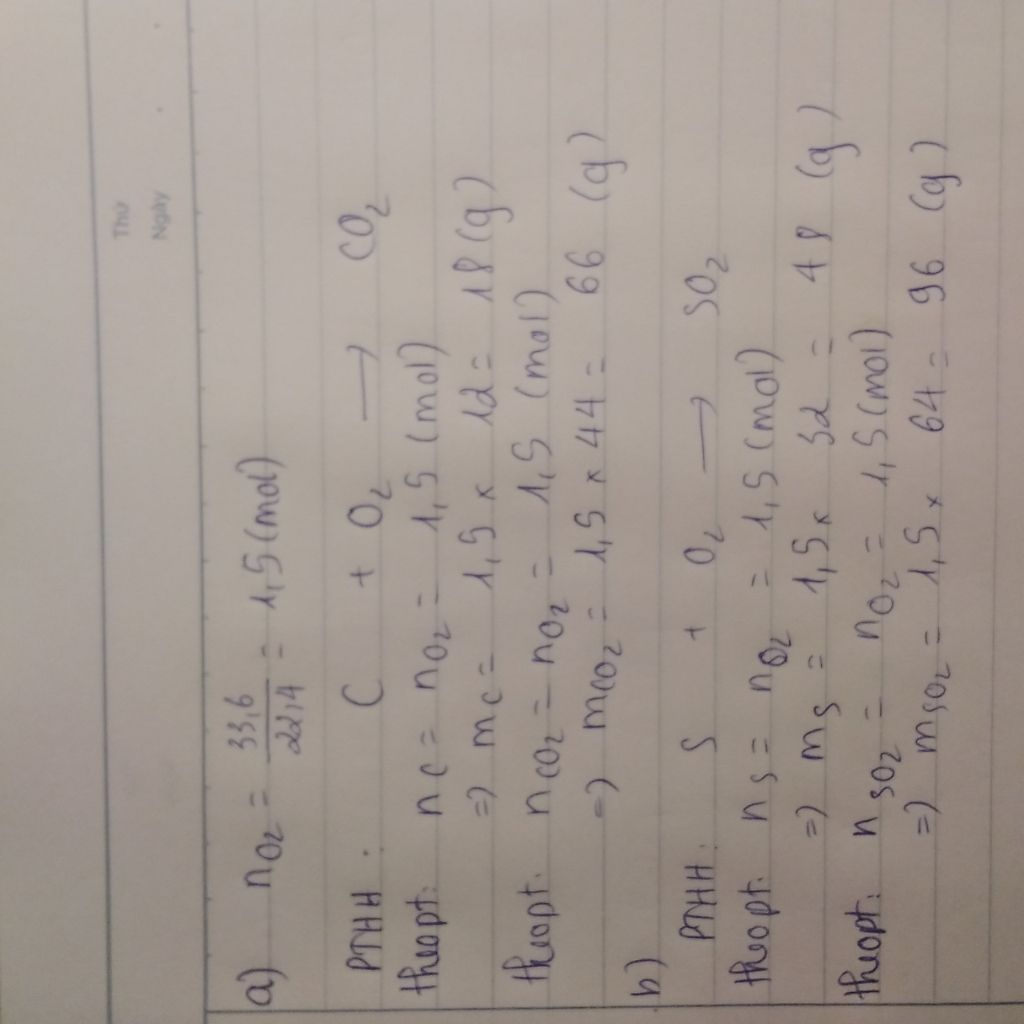 Thứ
Ngày
a) nO₂ = 33,6/22,4 = 1,5 (mol)
PTHH: C + O₂ → CO₂
theopt: nC = nO₂ = 1,5 (mol)
=) mC = 1,5 x 12 = 18 (g)
theopt. nCO₂ = nO₂ = 1,5 (mol)
=) mCO₂ = 1,5 x 44 = 66 (g)
b) PTHH: S + O₂ → SO₂
theopt. nS = nO₂ = 1,5 (mol)
=) mS = 1,5 x 32 = 48 (g)
theopt: nSO₂ = nO₂ = 1,5 (mol)
=) mSO₂ = 1,5 x 64 = 96 (g)